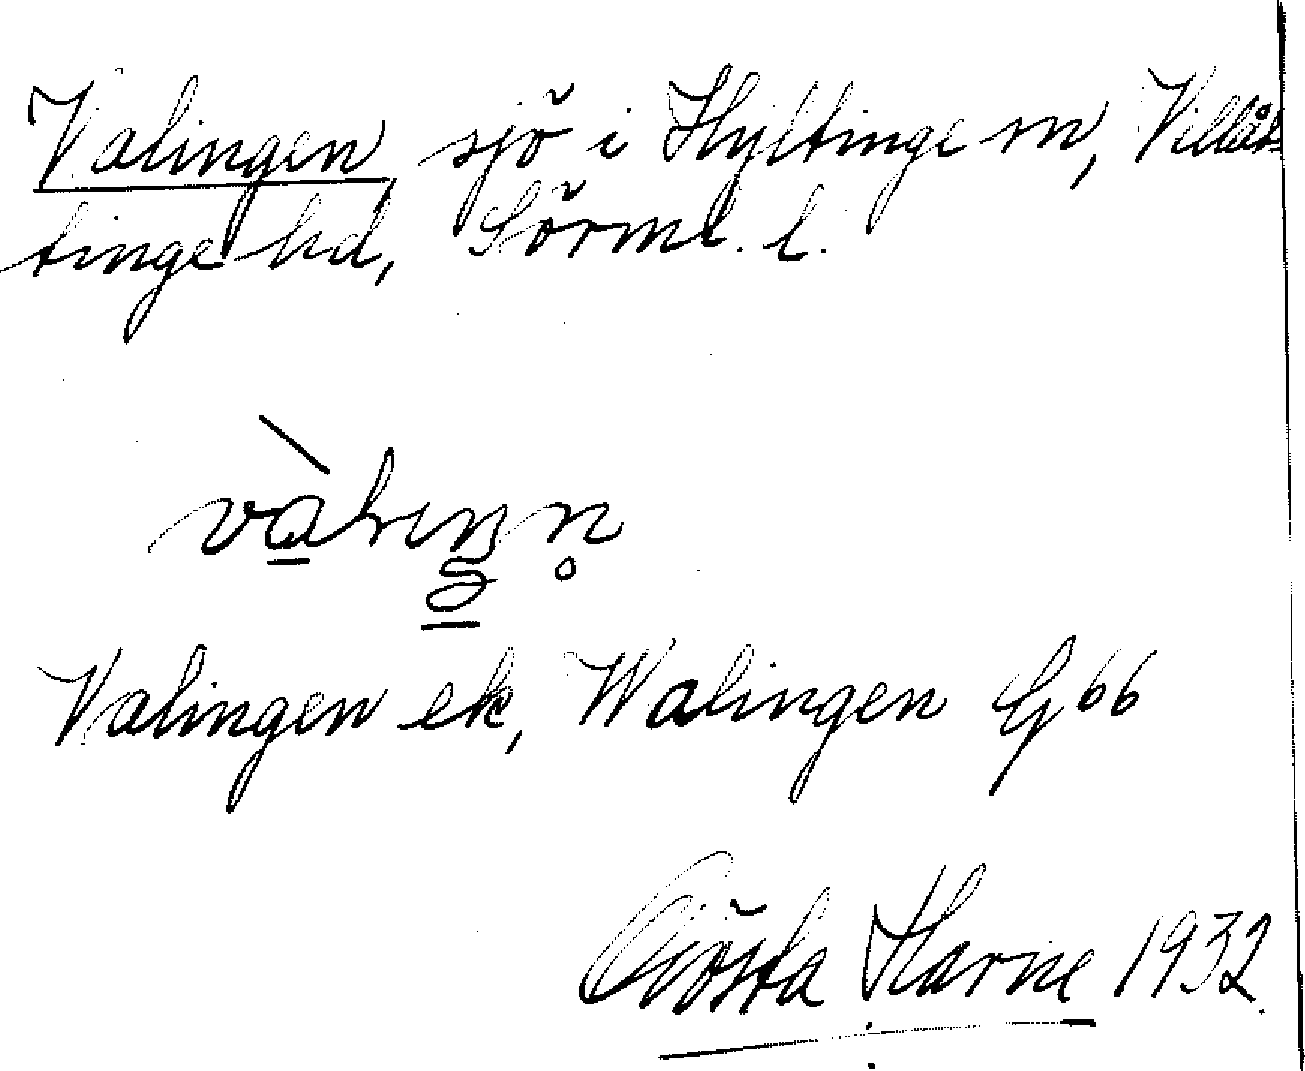 Valingen, sjö i Hyltinge sn, Villåt-
tinge hd, Sörml. l.
Valingen ek, Walingen G 66
Gösta Harne 1932.